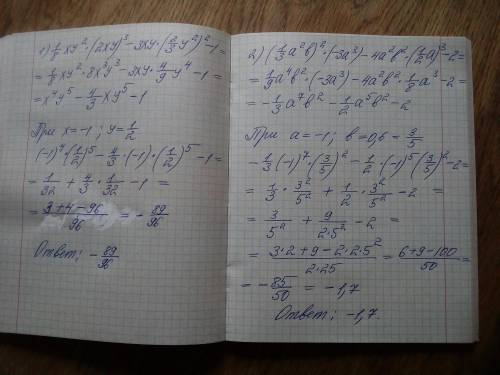 1) 1/8 xy² · (2xy)³ − 3xy · (2/3 y²)² − 1 =
= 1/8 xy² · 8x³y³ − 3xy · 4/9 y⁴ − 1 =
= x⁴y⁵ − 4/3 xy⁵ − 1
При x = −1 ; y = 1/2
(−1)⁴ · (1/2)⁵ − 4/3 · (−1) · (1/2)⁵ − 1 =
= 1/32 + 4/3 · 1/32 − 1 =
= (3 + 4 − 96)/96 = − 89/96
Ответ: − 89/96
2) (1/3 a²b)² · (−3a³) − 4a²b² · (1/2 a)³ − 2 =
= 1/9 a⁴b² · (−3a³) − 4a²b² · 1/8 a³ − 2 =
= − 1/3 a⁷b² − 1/2 a⁵b² − 2
При a = −1 ; b = 0,6 = 3/5
− 1/3 (−1)⁷ · (3/5)² − 1/2 · (−1)⁵ (3/5)² − 2 =
= 1/3 · 3²/5² + 1/2 · 3²/5² − 2 =
= 3/5² + 9/(2·5²) − 2 =
= (3·2 + 9 − 2·2·5²)/(2·25) = (6 + 9 − 100)/50 =
= − 85/50 = −1,7
Ответ: −1,7.